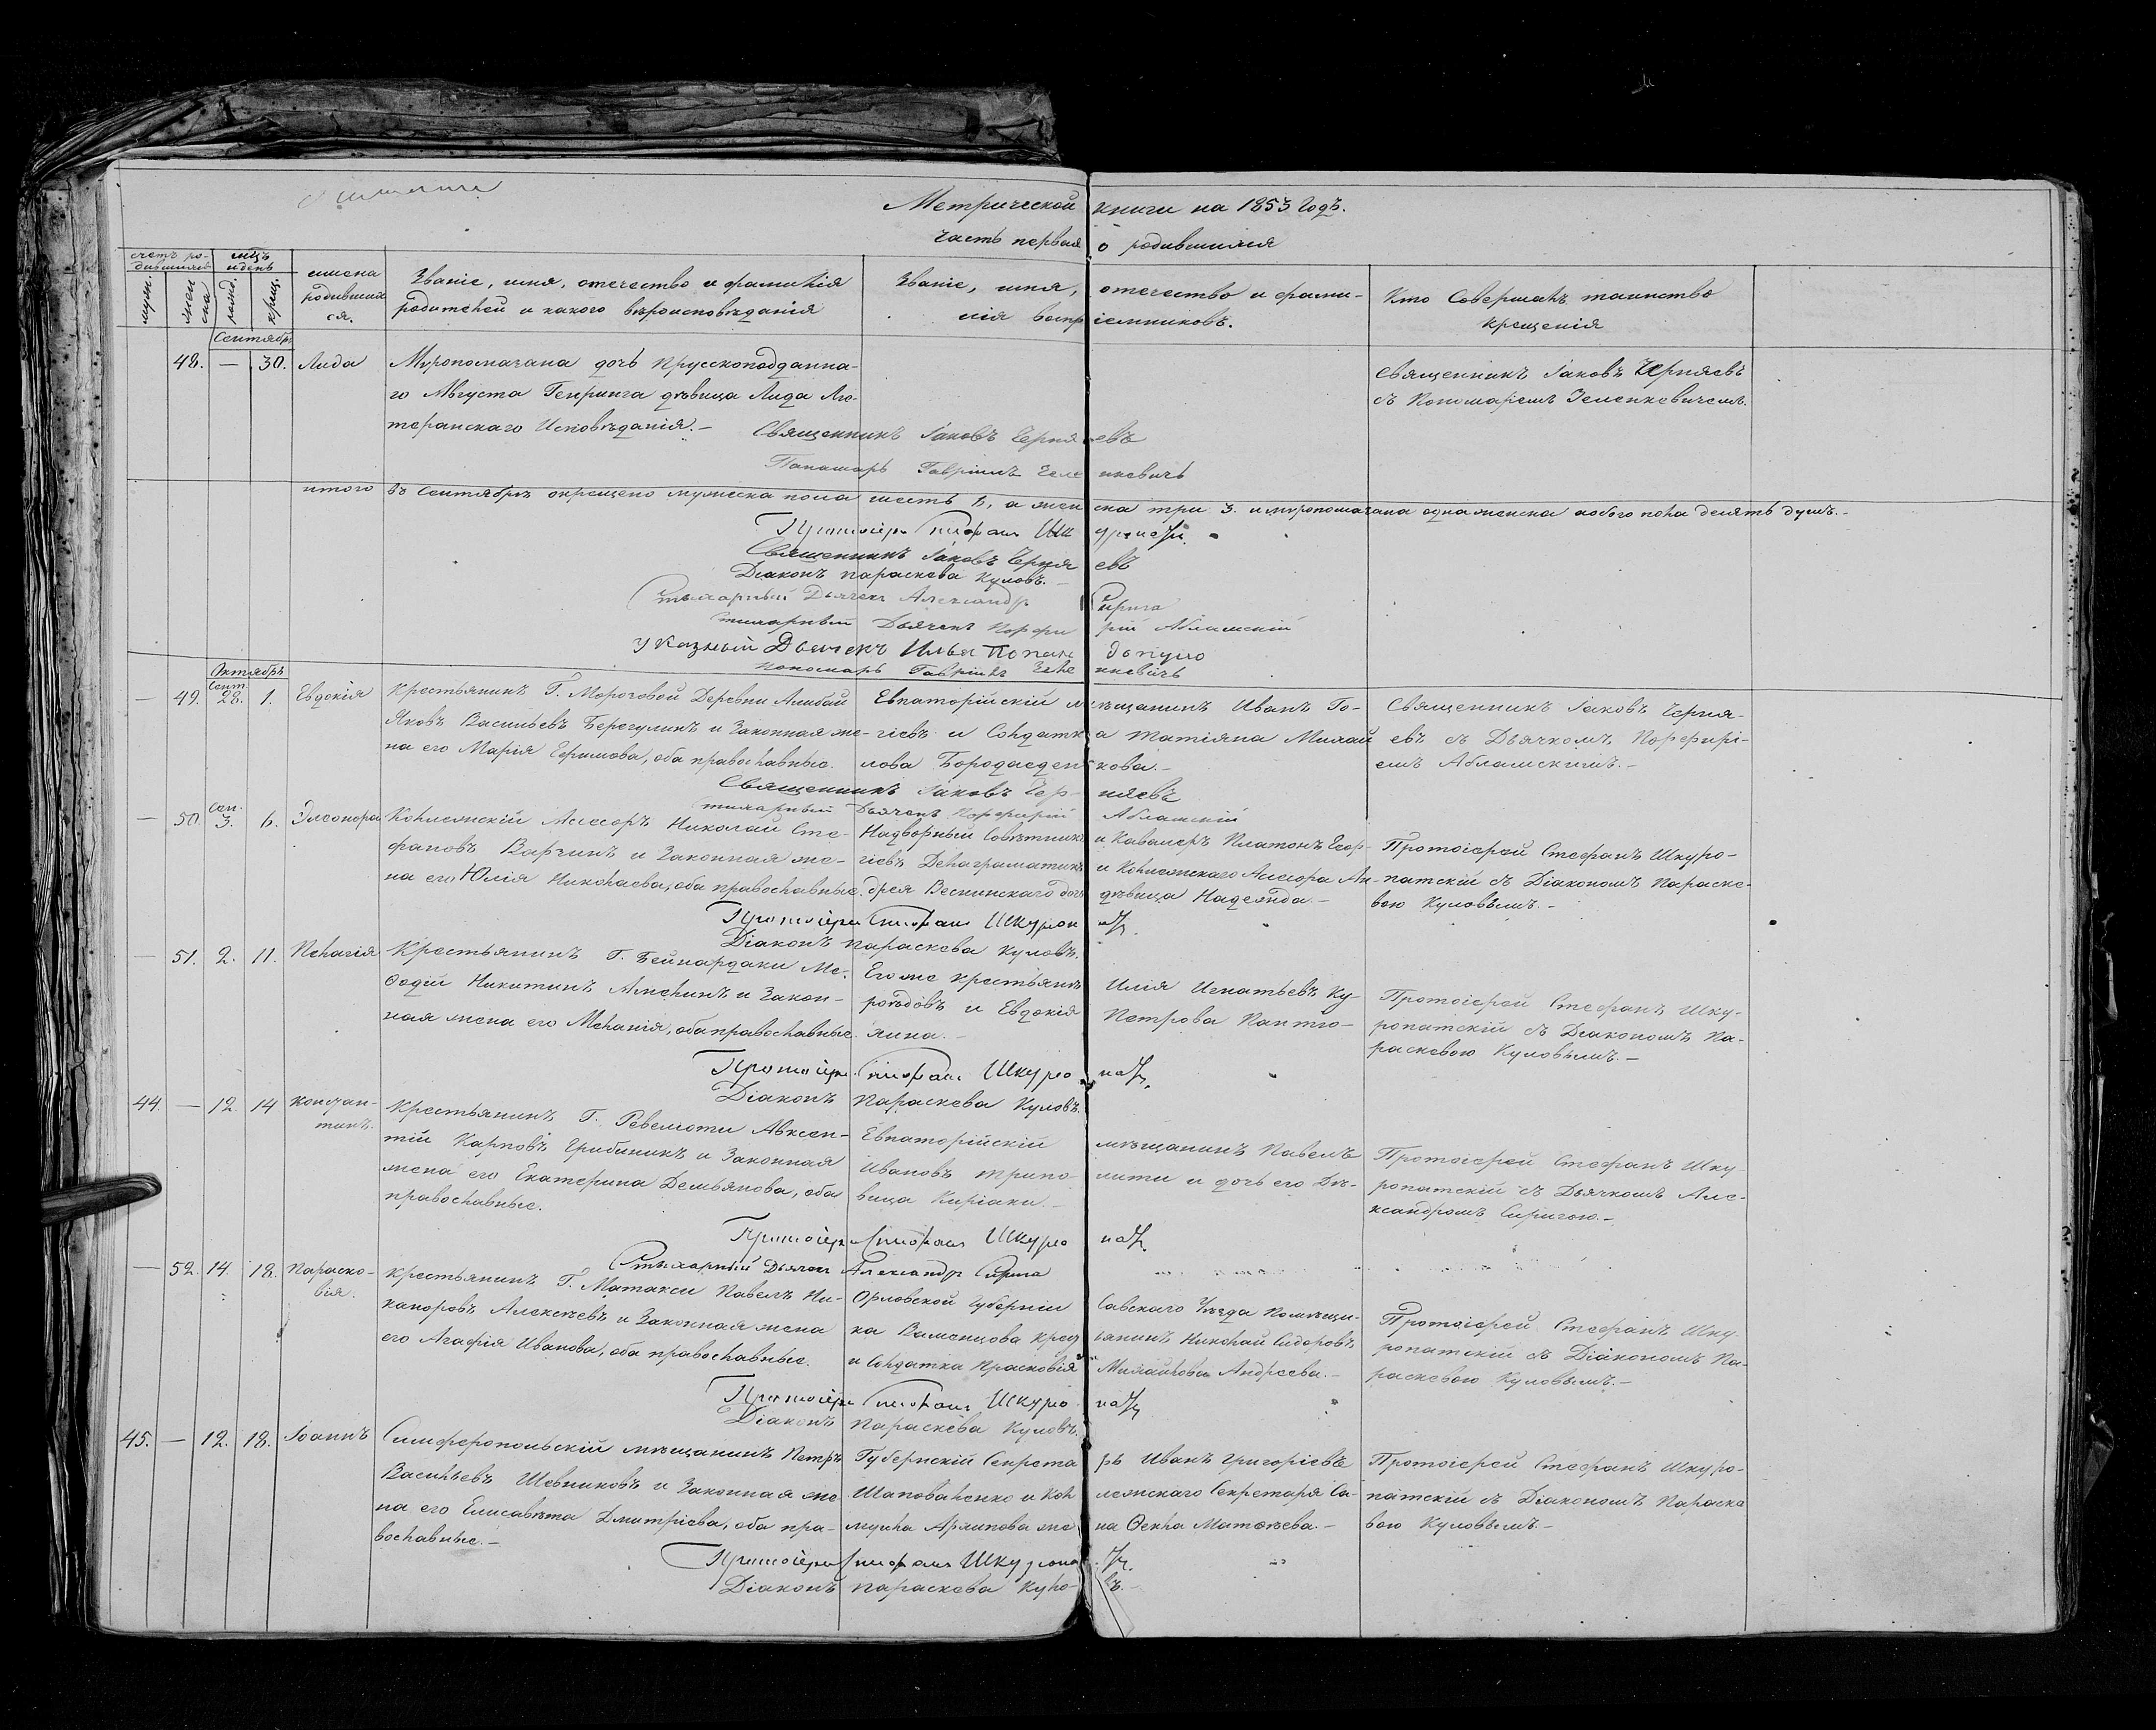 Метрической книги на 1853 годъ.
часть первая о родившихся
счетъ родившихся
муж.
женска
мцъ и день
рожд.
крещ.
имена родившихся.
Званіе, имя, отечество и фамилія
родителей и какого вѣроисповѣданія
Званіе, имя, отечество и фами-
лія воспріемниковъ.
Кто Совершалъ таинство
крещенія
Сентябрь
48. — 30. Лида
Мѵропомазана дочь Прусскоподданна-
го Августа Генринга дѣвица Лида Лю-
теранскаго Исповѣданія. —
Священникъ Іаковъ Черняевъ
съ Пономаремъ Зеленкевичемъ.
Священникъ Іаковъ Черняевъ
Понамарь Гавріилъ Зеленкевичь
итого въ Сентябрѣ окрещено мужеска пола шесть 6, а женска три 3. и мѵропомазана одна женска а обого пола десять душъ. —
Протоіерей Стефанъ
Священникъ Іаковъ Черняевъ
Діаконъ Параскева Куловъ. —
Стихарный Дьячекъ Александръ Сирига
Стихарный Дьячекъ Порфирій Абламскій
Указный Дьячекъ Илья Попандопуло
Пономарь Гавріилъ Зеленкевичь
Октябрь
— 49. Сент. 28. 1. Евдокія
Крестьянинъ Г. Морочовой Деревни Алибай
Яковъ Васильевъ Берегулинъ и Законная же-
на его Марія Ефимова, оба православные.
Евпаторійскій мѣщанинъ Иванъ Го-
гіевъ и Солдатка Татіяна Михай
лова Бородаеденкова. —
Священникъ Іаковъ Черня-
евъ съ Дьячкомъ Порфирі-
емъ Абламскимъ. —
Священникъ Іаковъ Черняевъ
Стихарный Дьячекъ Порфирій Абламскій
— 50. Сен. 3. 6. Элеонора
Колежскій Асессоръ Николай Сте-
фановъ Варчинъ и Законная же-
на его Юлія Николаева, оба православные.
Надворный Совѣтникъ и Кавалеръ Платонъ Геор-
гіевъ Делаграматикъ и Колежскаго Асессора Ан-
дрея Веснинскаго дочь дѣвица Надежда. —
Протоіерей Стефанъ Шкуро-
патскій съ Діакономъ Параске-
вою Куловымъ. —
Протоіерей Стефанъ Шкуропат
Діаконъ Параскева Куловъ.
— 51. 2. 11. Пелагія
Крестьянинъ Г. Бейнардаки Ме-
ѳодій Никитинъ Алехинъ и Закон-
ная жена его Меланія, оба православные.
Его же крестьянинъ Илія Игнатьевъ Ку-
роѣдовъ и Евдокія Петрова Пантю-
хина. —
Протоіерей Стефанъ Шку-
ропатскій съ Діакономъ Па-
раскевою Куловымъ. —
Протоіерей Стефанъ Шкуропат
Діаконъ Параскева Куловъ.
44. — 12. 14 Констан-
тинъ.
Крестьянинъ Г. Ревелиоти Авксен-
тій Карповъ Грибининъ и Законная
жена его Екатерина Демьянова, оба
православные.
Евпаторійскій мѣщанинъ Павелъ
Ивановъ Триполити и дочь его Дѣ-
вица Киріаки. —
Протоіерей Стефанъ Шку
ропатскій съ Дьячкомъ Але-
ксандромъ Сиригою. —
Протоіерей Стефанъ Шкуропат
Стихарный Дьячек Александръ Сирига
— 52. 14. 18. Параско-
вія.
Крестьянинъ Г. Матакси Павелъ Ни-
каноровъ Алексѣевъ и Законная жена
его Агафія Иванова, оба православные.
Орловской Губерніи Савскаго Уѣзда Помѣщи-
ка Ваменцова крестьянинъ Николай Сидоровъ
и Солдатка Прасковія Михайлова Андреева. —
Протоіерей Стефанъ Шку-
ропатскій съ Діакономъ Па-
раскевою Куловымъ. —
Протоіерей Стефанъ Шкуропат
Діаконъ Параскева Куловъ.
45. — 12. 18. Іоаннъ
Симферопольскій мѣщанинъ Петръ
Васильевъ Шевниковъ и Законная же
на его Елисавѣта Дмитріева, оба пра-
вославные. —
Губернскій Секретарь Иванъ Григорьевъ
Шаповаленко и Коллежскаго Секретаря Са-
муила Архипова жена Ѳекла Матвѣева. —
Протоіерей Стефанъ Шкуро-
патскій съ Діакономъ Параске
вою Куловымъ. —
Протоіерей Стефанъ Шкуропат
Діаконъ Параскева Куловъ. —